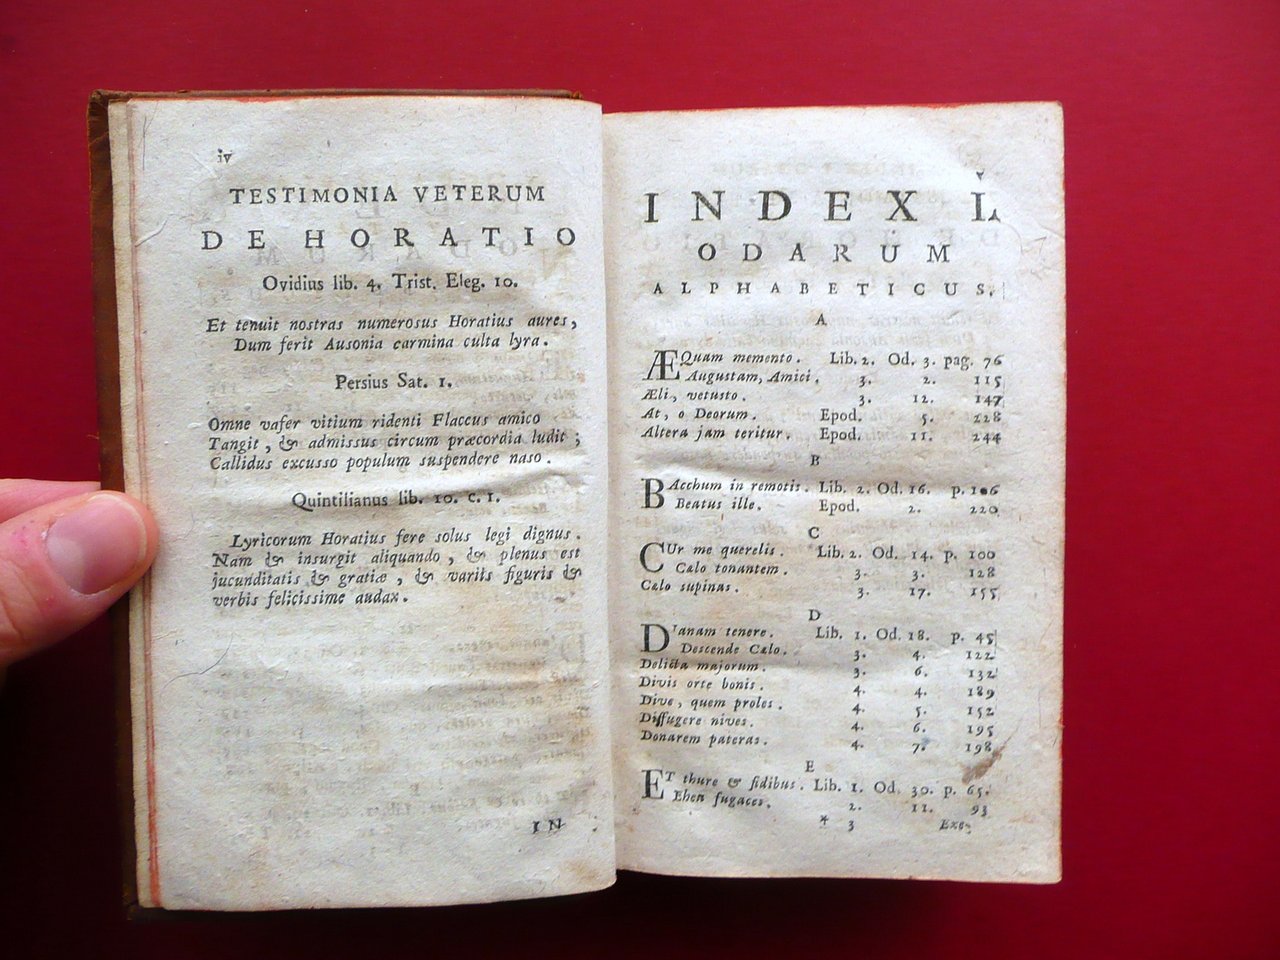 iv
TESTIMONIA VETERUM
DE HORATIO
Ovidius lib. 4. Trist. Eleg. 10.
Et tenuit nostras numerosus Horatius aures,
Dum ferit Ausonia carmina culta lyra.
Persius Sat. 1.
Omne vafer vitium ridenti Flaccus amico
Tangit, & admissus circum præcordia ludit;
Callidus excusso populum suspendere naso.
Quintilianus lib. 10. c. 1.
Lyricorum Horatius fere solus legi dignus.
Nam & insurgit aliquando, & plenus est
jucunditatis & gratiæ, & variis figuris &
verbis felicissime audax.
IN
INDEX I.
ODARUM
ALPHABETICUS.
A
ÆQuam memento. Lib. 2. Od. 3. pag. 76
Augustam, Amici. 3. 2. 115
Æli, vetusto. 3. 12. 147
At, o Deorum. Epod. 5. 228
Altera jam teritur. Epod. 11. 244
B
BAcchum in remotis. Lib. 2. Od. 16. p. 106
Beatus ille. Epod. 2. 220
C
CUr me querelis. Lib. 2. Od. 14. p. 100
Cælo tonantem. 3. 3. 128
Cælo supinas. 3. 17. 155
D
D'anam tenere. Lib. 1. Od. 18. p. 45
Descende Cælo. 3. 4. 122
Delicta majorum. 3. 6. 132
Divis orte bonis. 4. 4. 189
Dive, quem proles. 4. 5. 152
Diffugere nives. 4. 6. 195
Donarem pateras. 4. 7. 198
E
ET thure & fidibus. Lib. 1. Od. 30. p. 65.
Eheu fugaces. 2. 11. 93
* 3 Exe-